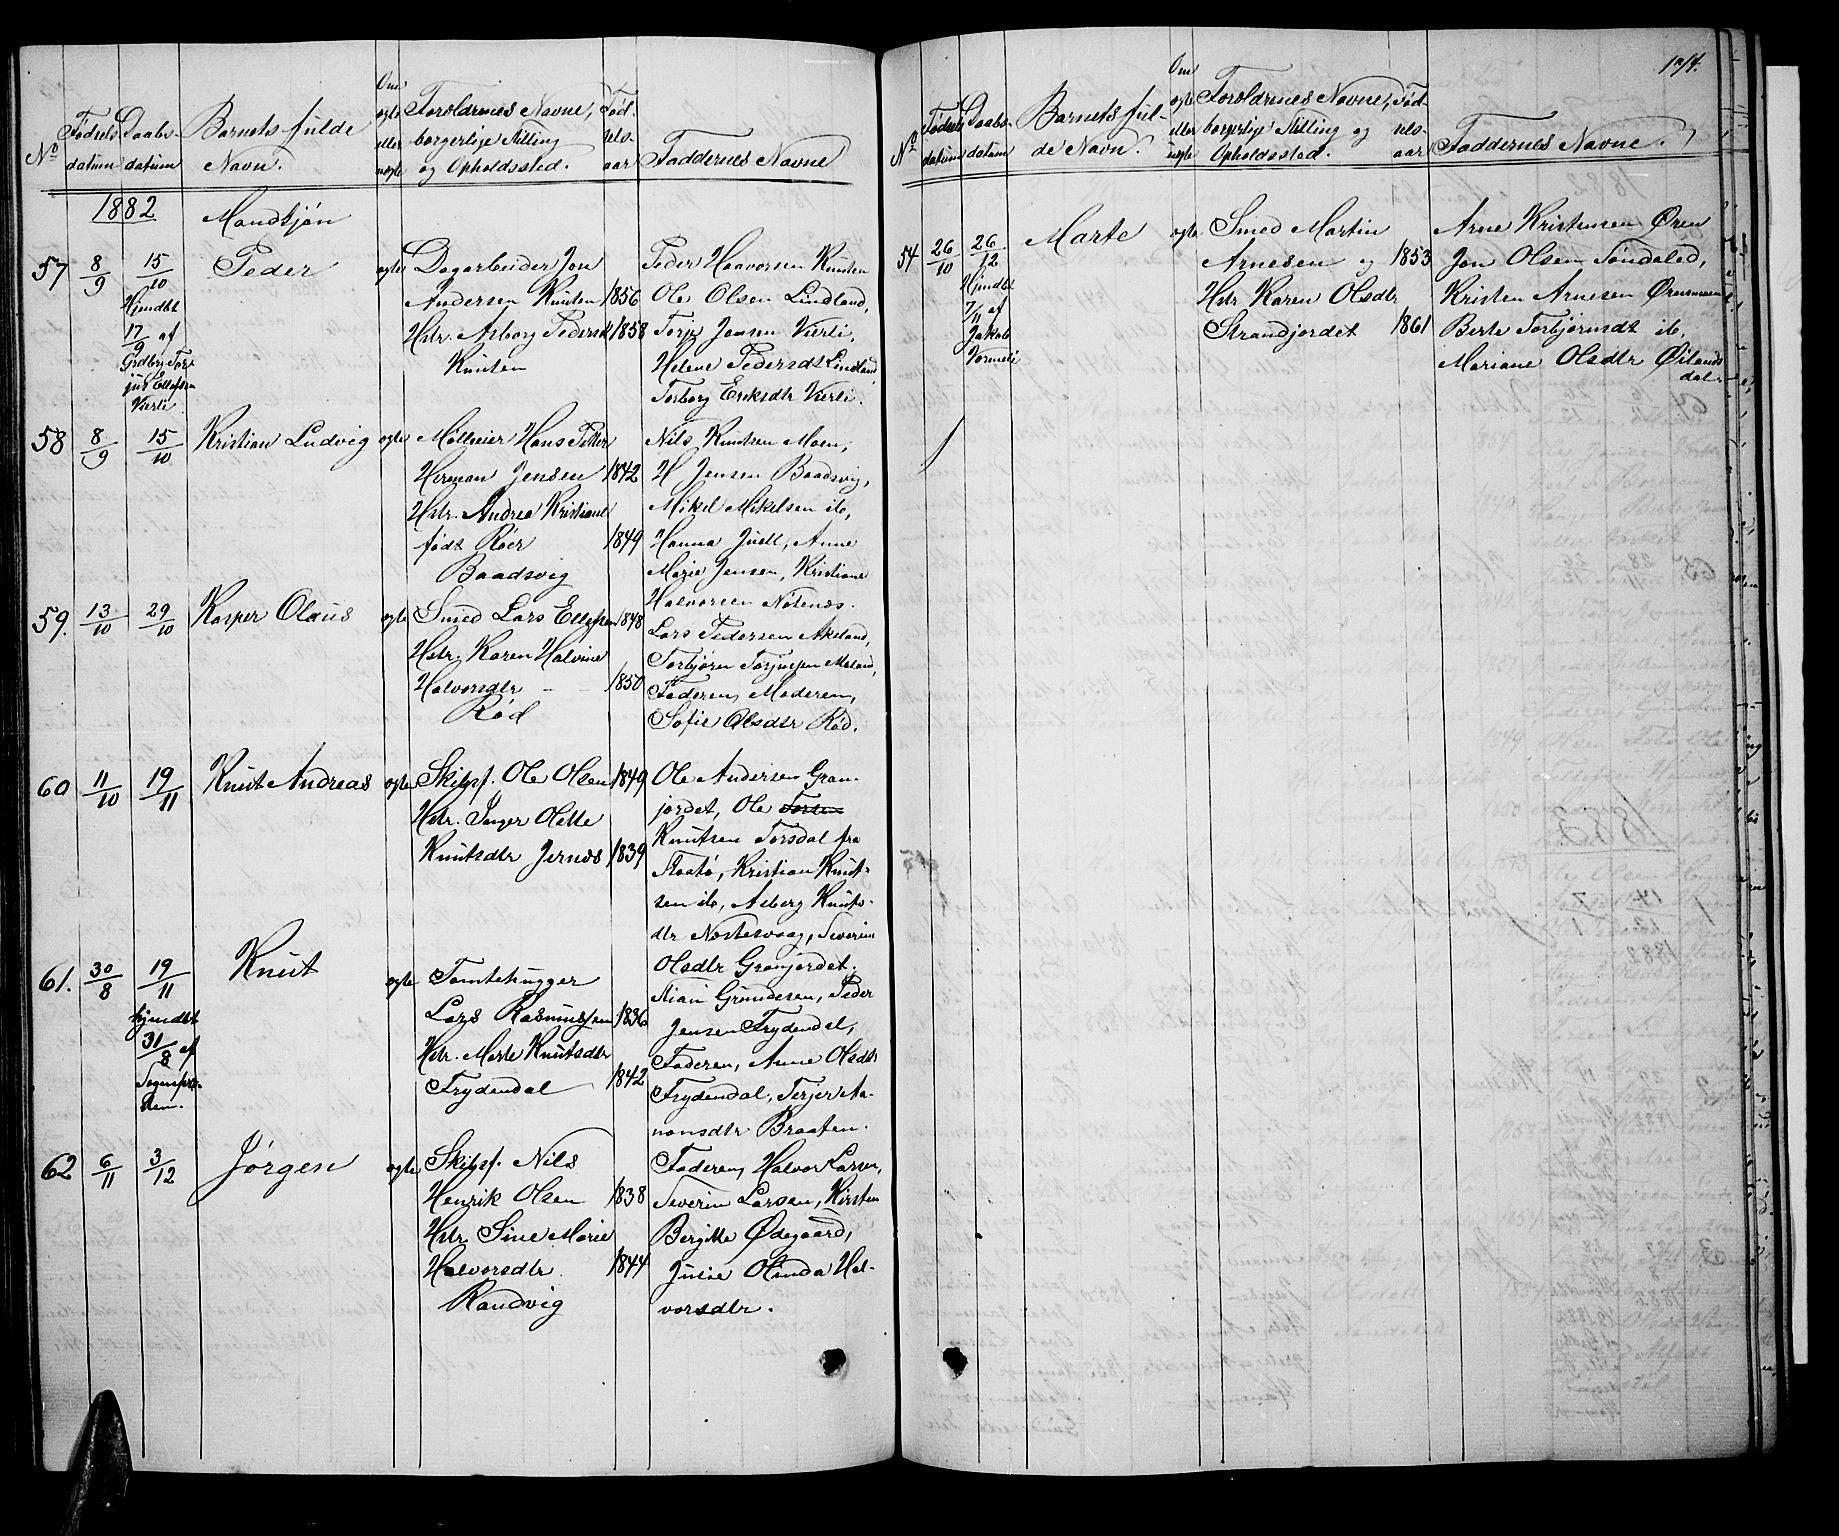 No
Fødsels
datum
Daabs-
datum.
Barnets fulde
Navn.
Om
ægte
eller
uægte
Forældrenes Navne,
borgerlige Stilling
og Opholdssted.
Fød-
sels-
aar
Faddernes Navne
1882
Mandkjøn
57
8/9
15/10
Hjemdøbt
17/9 af
Vierli.
Peder
ægte
Dagarbeider Jon
Andersen Knuten 1856
Hstr. Asborg Pedersdt 1858
Knuten
Peder Haavorsen Knuten
Ole Olsen Lindland,
Torje Jensen Vierli,
Helene Pedersdt Lindland,
Torborg Eriksdtr Vierli.
58
8/9
15/10
Kristian Ludvig
ægte
Møllneier Hans Petter
Herman Jensen 1842
Hstr. Andrea Kristiane
født Röer 1849
Baadsvig
Nils Knutsen Moen,
H Jensen Baadsvig,
Mikel Mikelsen ib,
Hanna Juell, Anne
Marie Jensen, Kristiane
Halvorsen Nötenes.
59.
13/10
29/10
Kasper Olaus
ægte
Smed Lars Ellefsen 1848
Hstr. Karen Halvine
Halvorsdtr 1850
Rød
Lars Pedersen Akeland,
Torbjørn Torjussen Meland,
Faderen, Moderen,
Sofie Olsdtr Rød.
60
11/10
19/11
Knut Andreas
ægte
Skibsf. Ole Olsen 1849
Hstr. Inger Olette
Knutsdtr Jernæs 1839
Ole Andersen Gran-
jordet, Ole
Knutsen Torsdal fra
Staatø, Kristian Knut-
sen ib, Asberg Knuts-
dtr Nøstesvaag, Severine
Olsdtr Granjordet.
61.
30/8
19/11
hjemdøbt
31/8 af
Sognepræ-
sten.
Knut
ægte
Tomtehugger
Lars Rasmussen 1836
Hstr. Marte Knutsdtr
Frydendal 1842
Stian Grundesen, Peder
Jensen Frydendal,
Faderen, Anne Olsdtr
Frydendal, Terjer Aa-
nonsdtr Braaten.
62
6/11
3/12
Jørgen
ægte
Skibsf. Nils
Henrik Olsen 1838
Hstr Sine Marie
Halvorsdtr. 1844
Randvig
Faderen, Halvor Larsen,
Severin Larsen, Kirsten
Bergitte Ødegaard,
Julie Olinda Hal-
vorsdtr.
No
Fødsels
datum
Daabs-
datum
Barnets ful-
de Navn.
Om
ægte
eller
uægte
Forældrenes Navne,
borgerlige Stilling og
Opholdssted.
Fød-
sels-
aar
Faddernes Navne.
54
26/10
26/12
Hjemdøbt
7/11 af
Jakob
Vormeli
Marte
ægte
Smed Martin
Arnesen og 1853
Hstr Karen Olsdtr
Strandjordet 1861
Arne Kristensen Øren
Jon Olsen Söndeled,
Kristen Arnesen Örensmoen
Berte Torbjørnsdt ib.
Mariane Olsdtr Øilands
dal